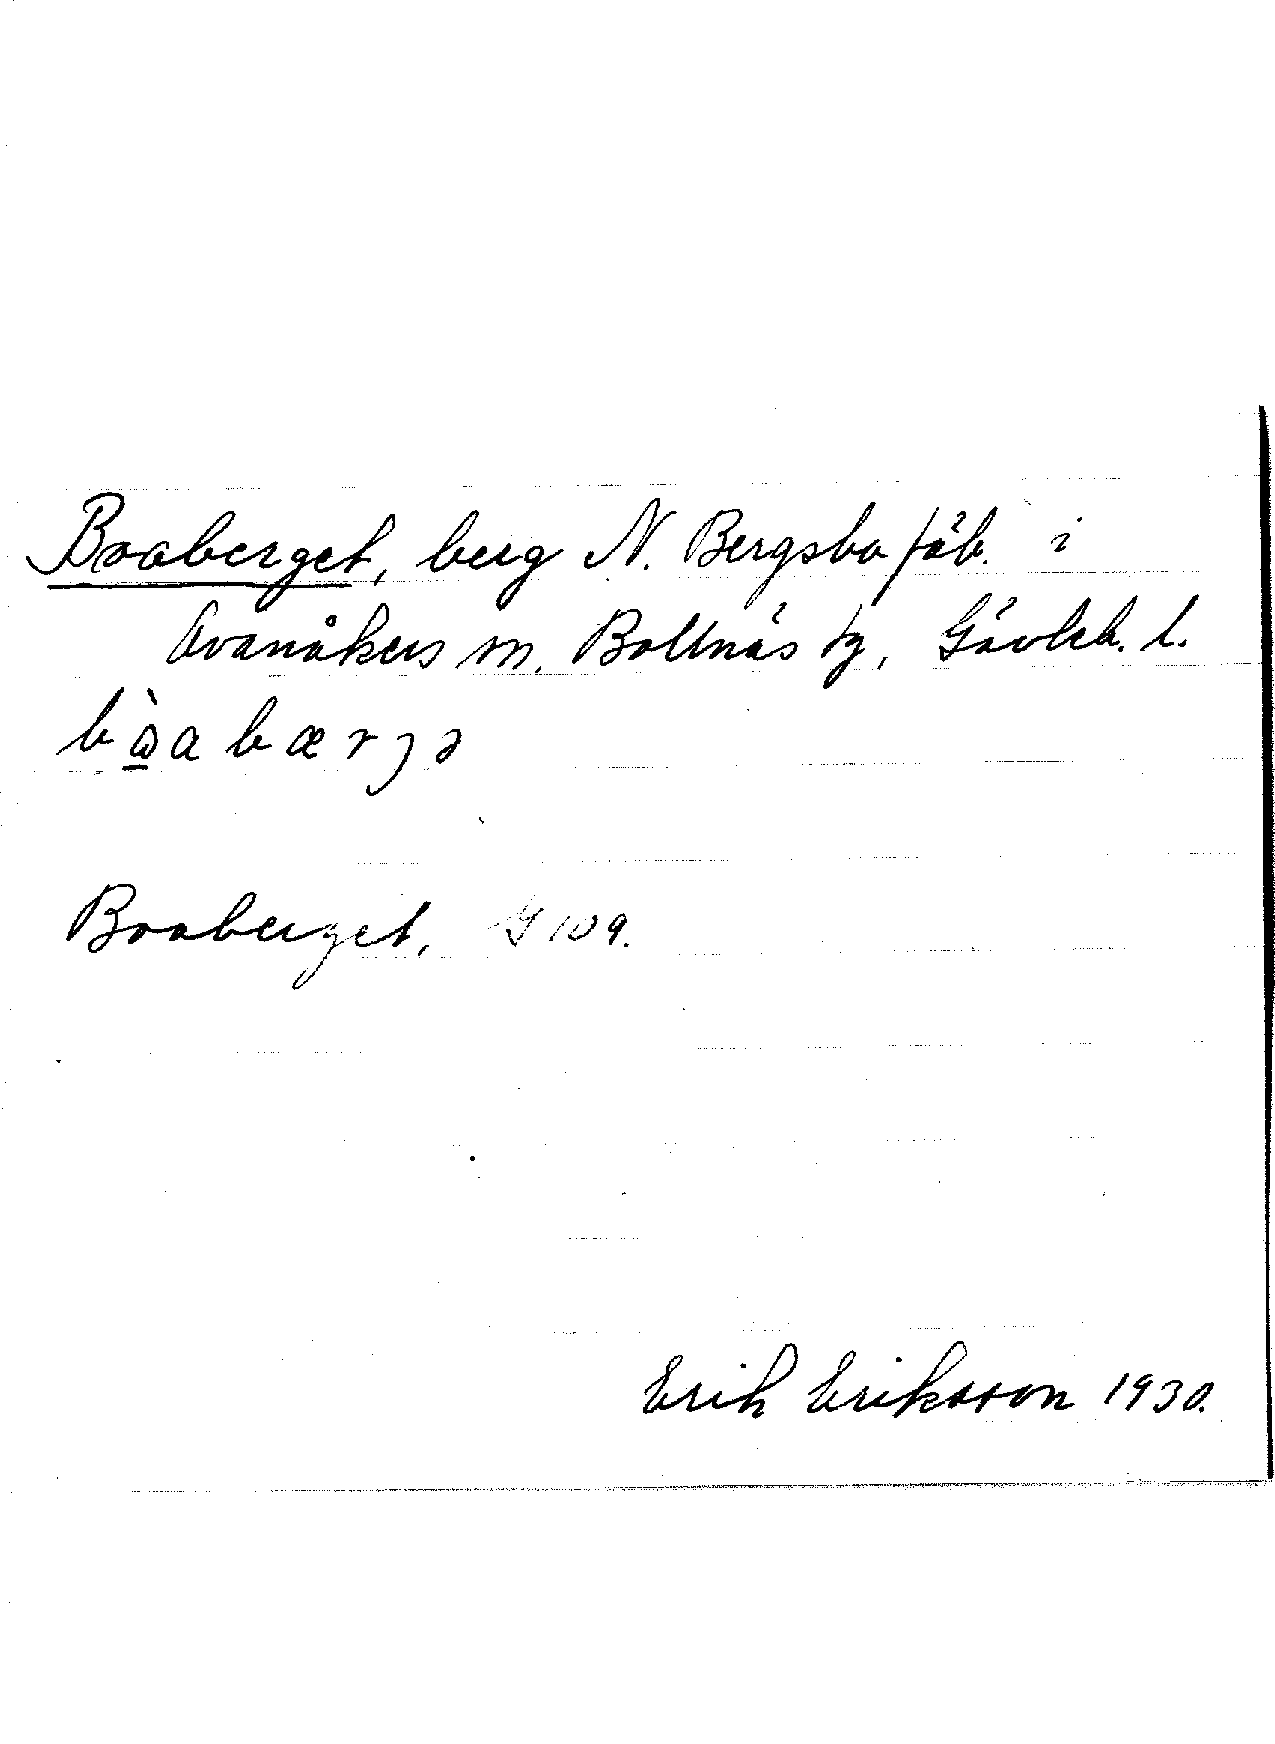 Boaberget, berg N. Bergsbo fäb. i
Ovanåkers sn. Bollnäs tg, Gävleb. l.
bὼabærjə
Boaberget, G 109.
Erik Eriksson 1930.